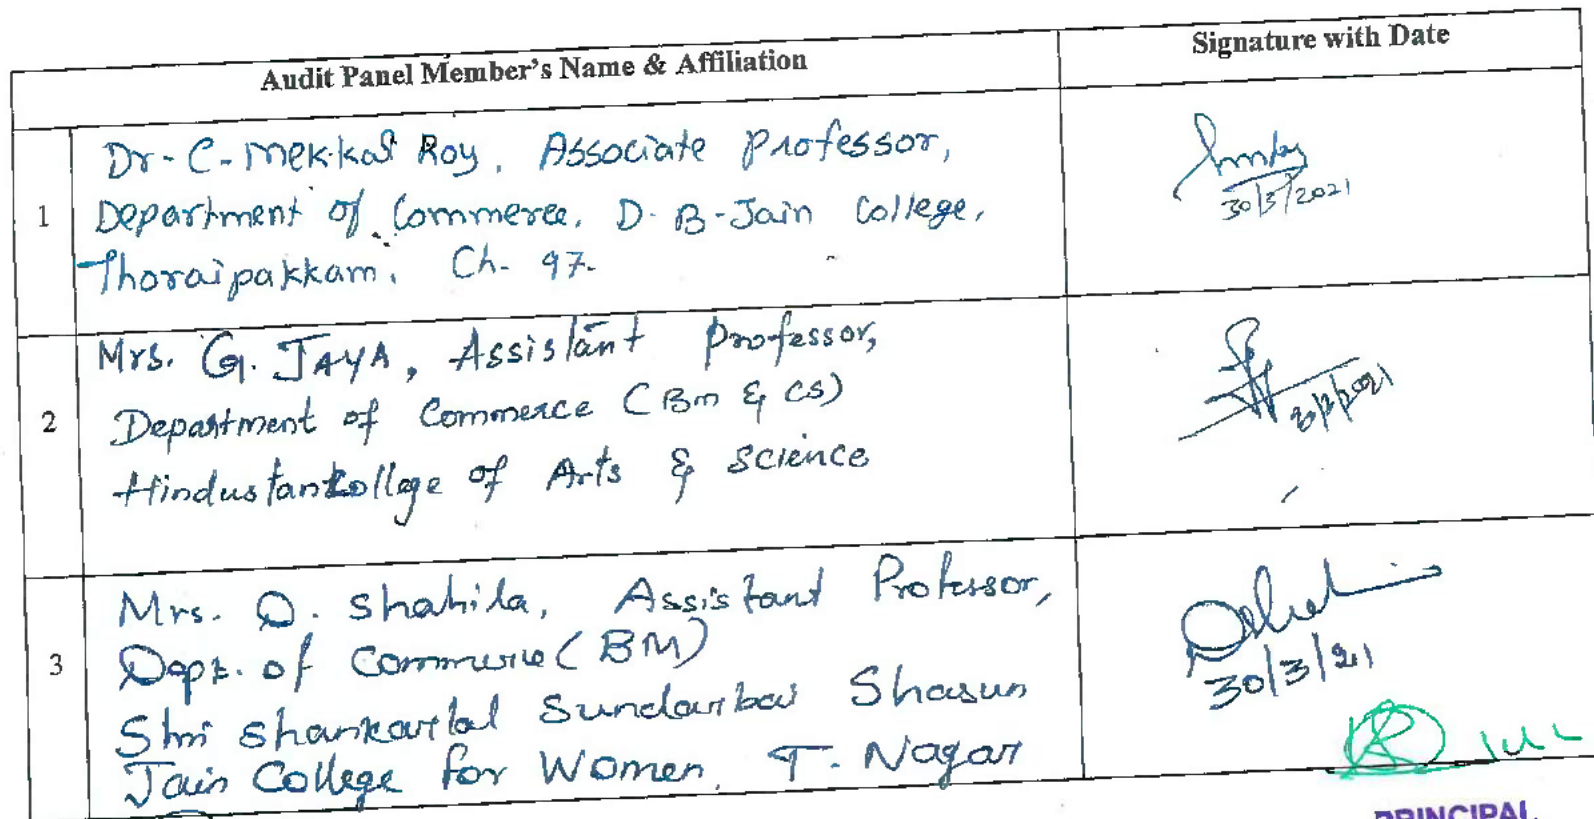 Audit Panel Member's Name & Affiliation
Signature with Date
1
Dr- C- Mekkal Roy, Associate Professor,
Department of Commerce, D. B-Jain College,
Thoraipakkam, Ch- 97.
30/3/2021
2
Mrs. G. JAYA, Assistant Professor,
Department of Commerce (Bm & CS)
Hindustan College of Arts & Science
30/3/2021
3
Mrs. D. Shahila, Assistant Professor,
Dept. of Commerce (BM)
Shri Shankarlal Sundarbai Shasun
Jain College for Women, T. Nagar
30/3/21
PRINCIPAL